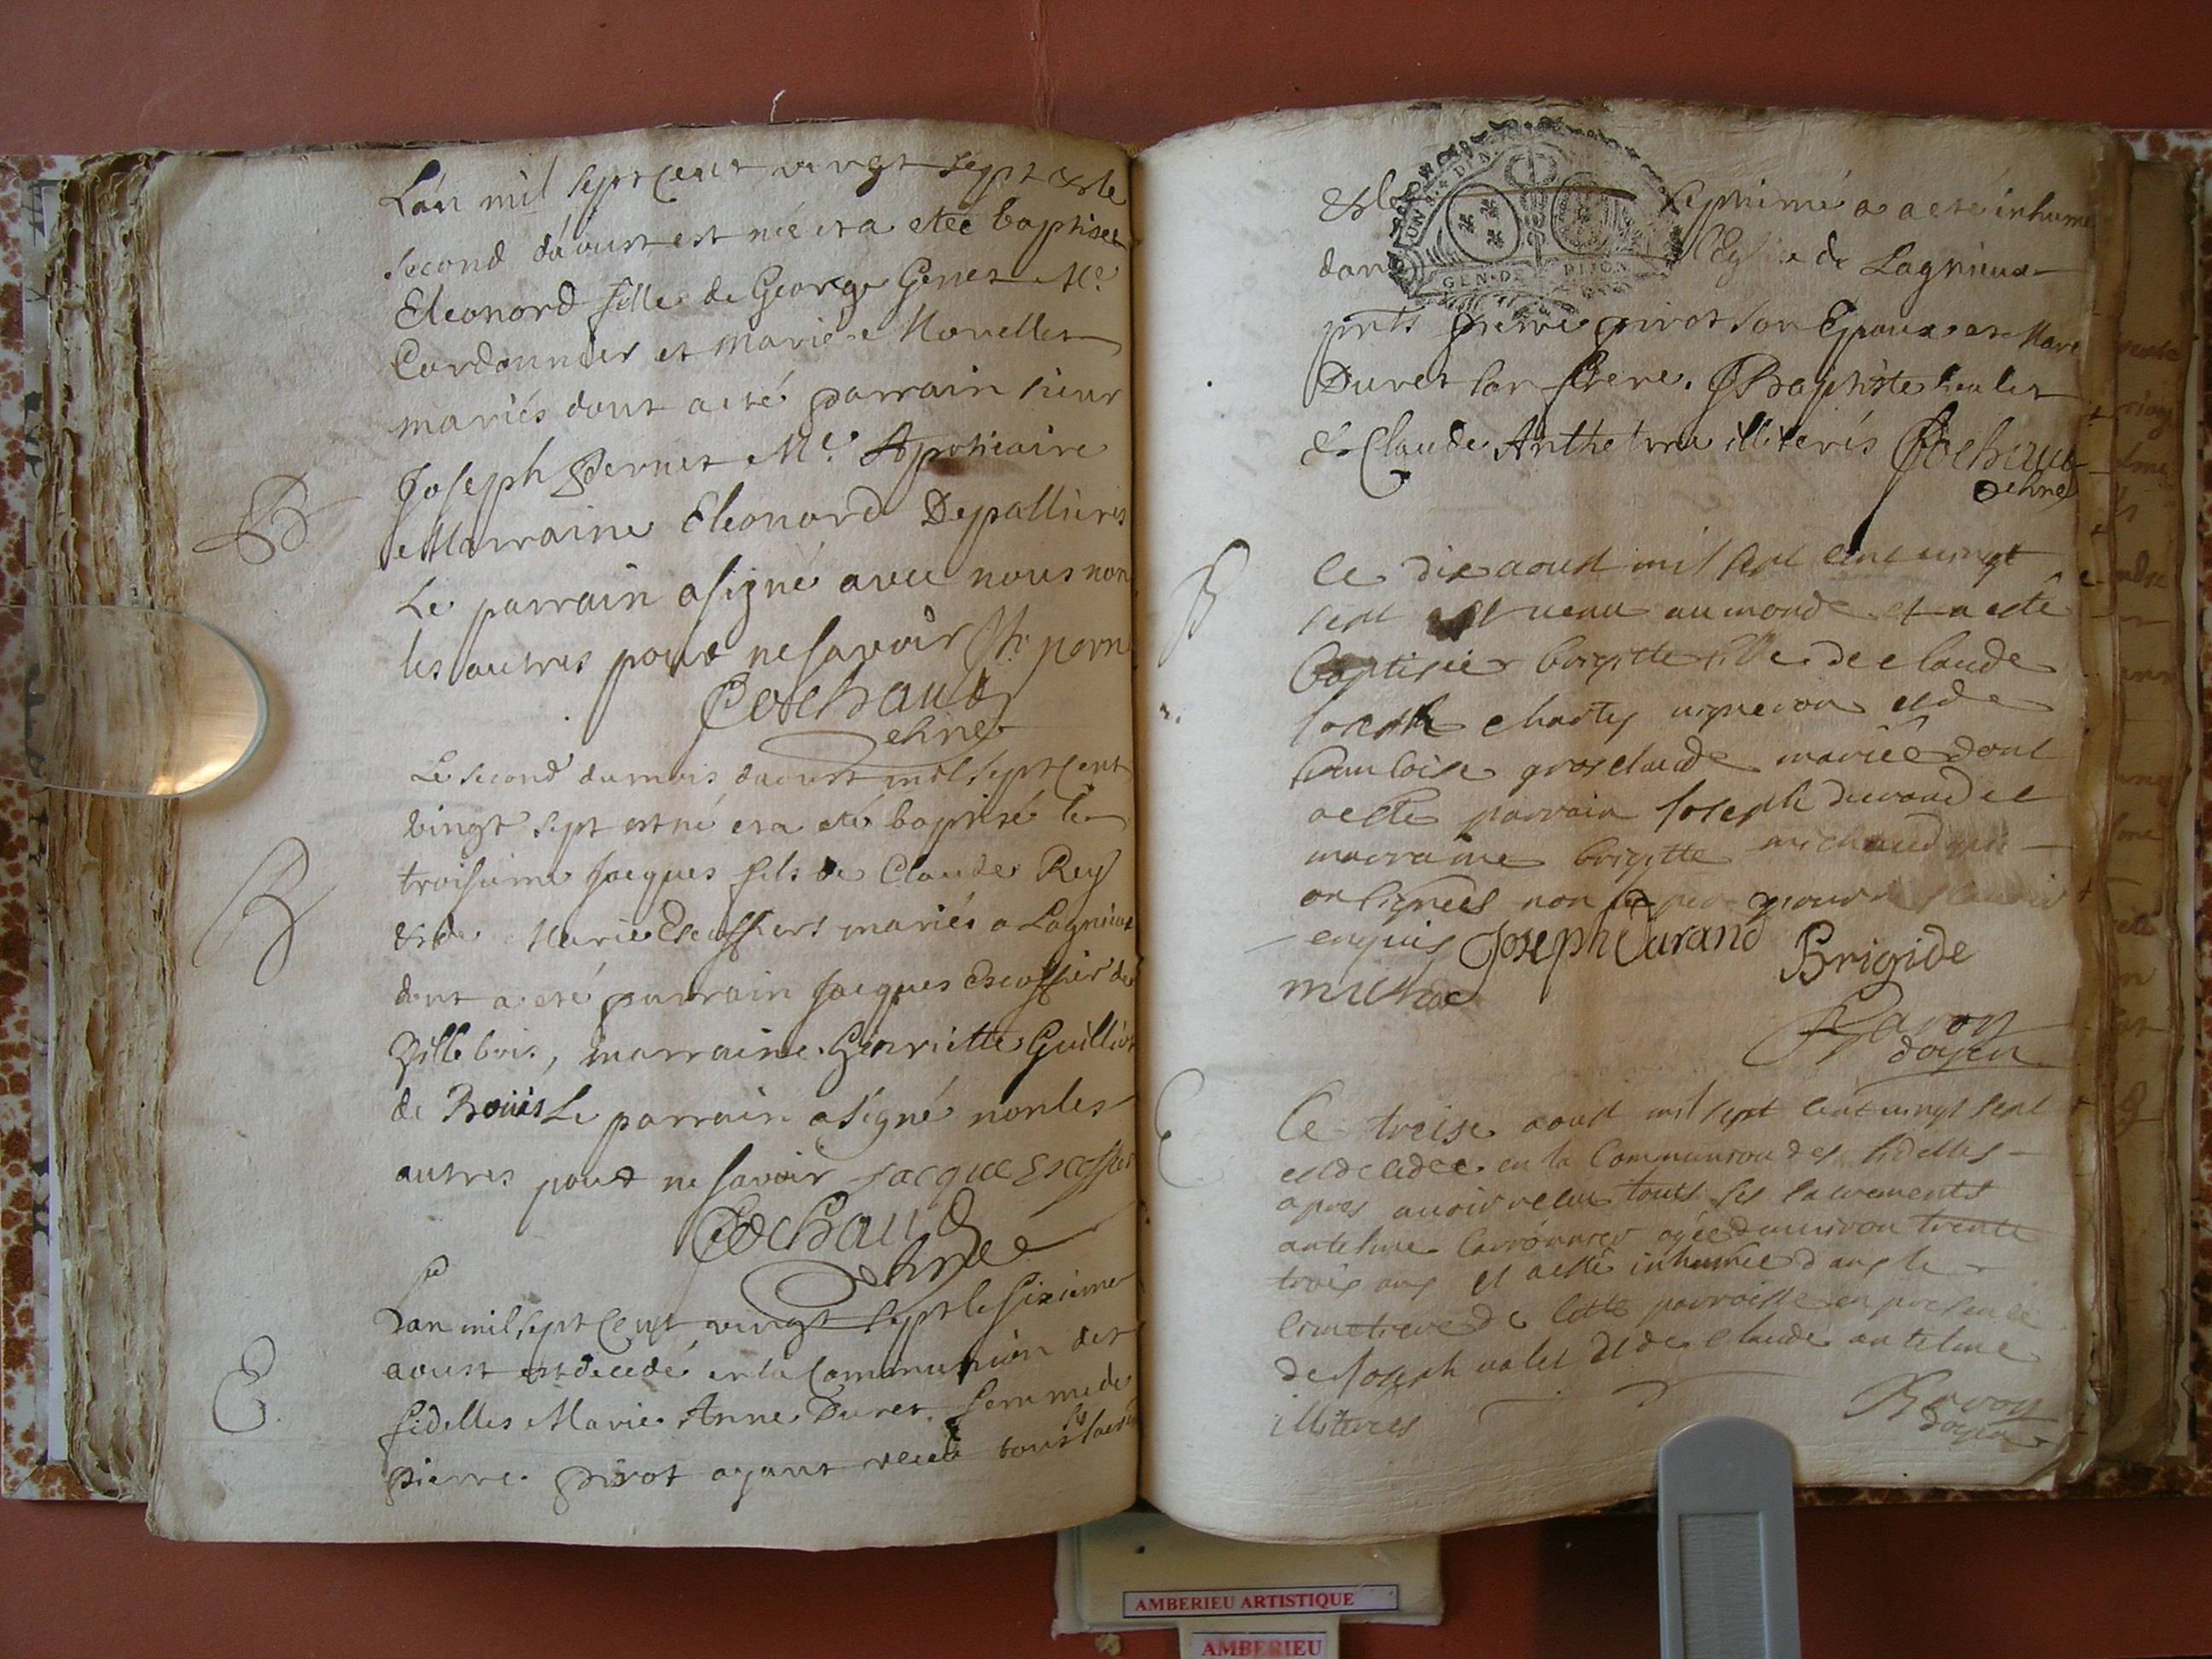 L'an mil sept cent vingt sept & le
second d'aoust est née et a etée baptisée
Eleonord fille de George Genet Me.
Cordonnier et Marie Novellet
mariés dont a eté parrain sieur
Joseph Pernet Me. Apoticaire
B
& Marraine Eleonord Depallieres
Le parrain a signé avec nous non
les autres pour ne savoir
Cochaud
Le second du mois d'aoust mil sept cent
vingt sept est né et a eté baptisé le
troisieme Jacques fils de Claude Rey
B
& de Marie Escoffiers mariés a Lagnieux
dont a eté parrain Jacques Escoffier de
Villebois, marraine Henriette Guilliot
de Le parrain a signé non les
autres pour ne savoir Jacque Escoffier
Cochaud
L'an mil sept cent vingt sept le sixieme
aoust est decedé en la Communion des
E.
fidelles Marie Anne Duret femme de
Pierre Pivot ayant receu tous les
& le septieme a eté inhumé
GEN. DE DIJON
dans l'Eglise de Lagnieux
pnts Pierre Pivot son Epoux et Marc
Duret son frere. JBaptiste
& Claude Anthelme illiterés Cochaud
B
Le dix aoust mil sept cent vingt
sept est venu au monde et a esté
baptisée brigitte fille de claude
Joseph vigneron et de
francoise grosclaude mariée dont
a esté parrain Joseph durand et
marraine brigitte michaud qui
on signées non le pere pour ne scavoir
enquis Joseph Durand Brigide
michod
Ravoy
doyen
E
Ce treise aoust mil sept cent vingt sept
est decedée en la Communion des fidelles
apres avoir receu touts ses sacrements
antelme agée denviron trente
trois ans et a esté inhumée dans le
cimetiere de cette parroisse en presence
de Joseph valet et de claude antelme
illiterées
Ravoy
doyen
AMBERIEU ARTISTIQUE
AMBERIEU